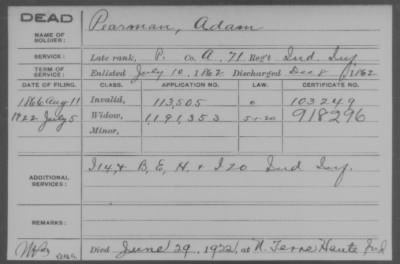 DEAD
NAME OF SOLDIER: Pearman, Adam
SERVICE: Late rank, P. Co. A, 71 Reg't Ind. Inf.
TERM OF SERVICE: Enlisted July 10, 1862 Discharged Dec 8, 1862
DATE OF FILING. CLASS. APPLICATION NO. LAW. CERTIFICATE NO.
1866 Aug 11 Invalid, 113,505 0 103249
1922 July 5 Widow, 1,191,353 5-1-20 918296
Minor,
ADDITIONAL SERVICES: I 144 B, E, H, + I 20 Ind Inf.
REMARKS:
Died June 29, 1922, at N. Terre Haute Ind